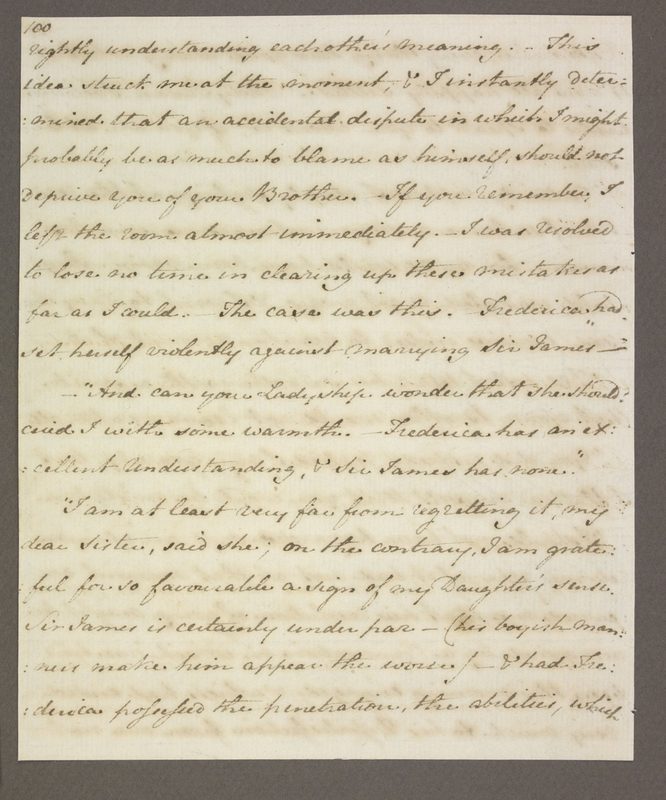 100
rightly understanding each other's meaning. – This
idea struck me at the moment, & I instantly deter:
:mined that an accidental dispute in which I might
probably be as much to blame as himself, should not
deprive you of your Brother. – If you remember, I
left the room almost immediately. – I was resolved
to lose no time in clearing up these mistakes as
far as I could. – The case was this. – Frederica had
set herself violently against marrying Sir James" –
– "And can your Ladyship wonder that she should?
cried I with some warmth. – Frederica has an ex:
:cellent Understanding, & Sir James has none."
"I am at least very far from regretting it, my
dear Sister, said she; on the contrary, I am grate:
:ful for so favourable a sign of my Daughter's sense.
Sir James is certainly under par – (his boyish man:
:ners make him appear the worse) – & had Fre:
:derica possessed the penetration, the abilities, which